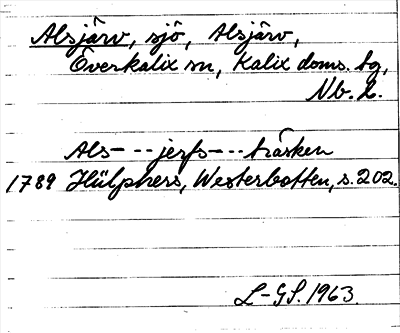 Alsjärv, sjö, Alsjärv,
Överkalix sn, Kalix doms. bg,
Nb. l.
Als---jerfs---träsken
1789 Hülphers, Westerbotten, s. 202.
L-GS. 1963.